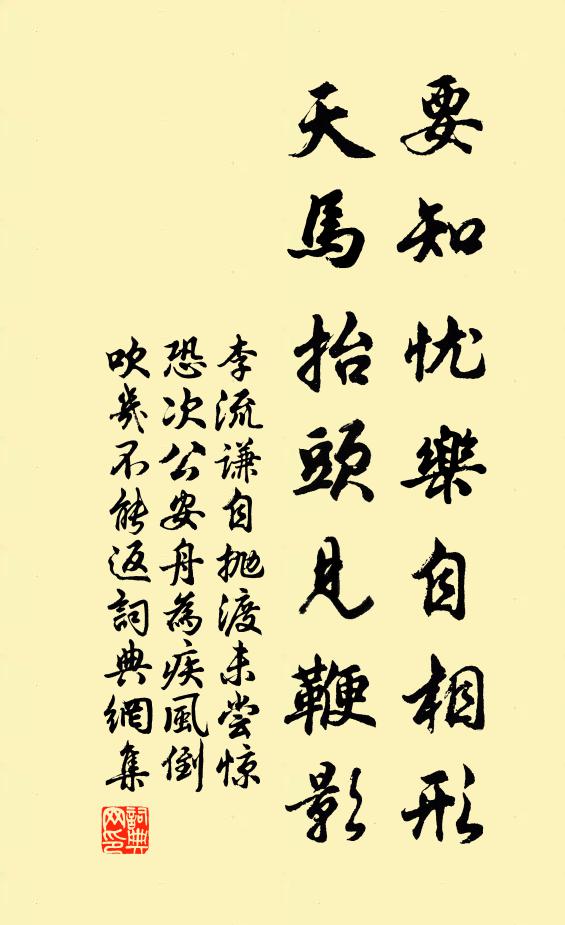 要知忧樂自相形
天馬抬頭見鞭影
李流謙自抛渡未尝惊
恐次公安舟為疾風倒
吹幾不能返詞典網集
詞典网印